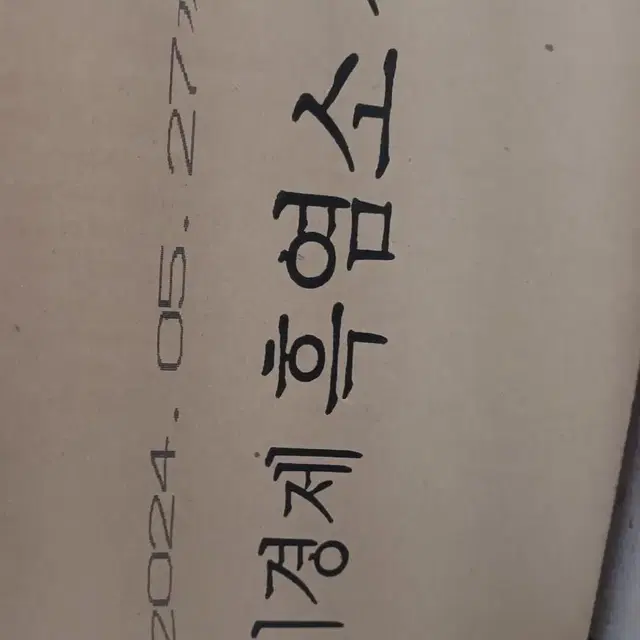 2024. 05. 27
경제 흑염소